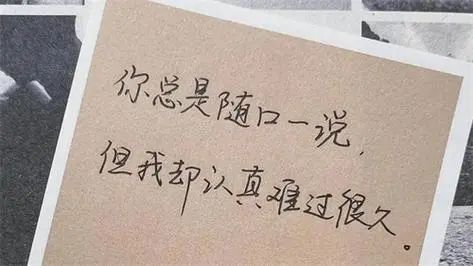 你总是随口一说,
但我却认真难过很久。